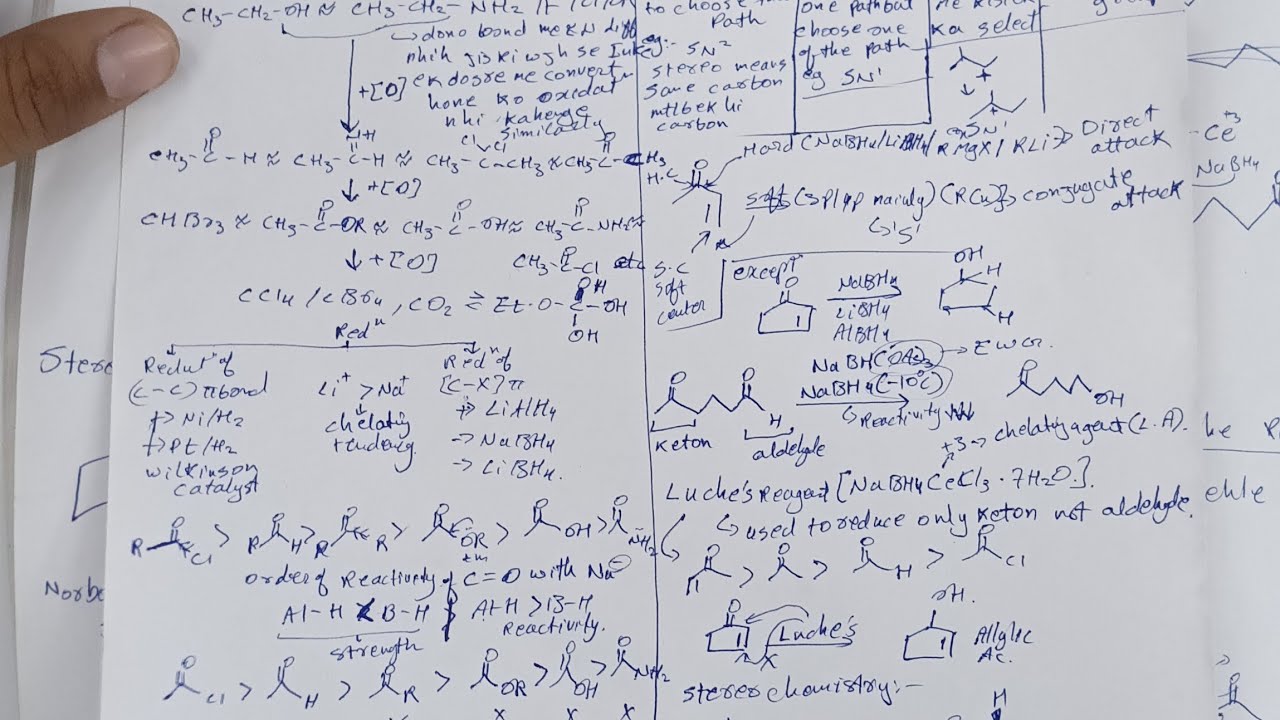 CH3-CH2-OH ≈ CH3-CH2-NH2
↳ dono bond me EN diff
nhi h jiski wjh se
ek dosre me convert
+[O]
hone ko oxidat
nhi kahenge
similarly
CH3-C-H ≈ CH3-C-H ≈ CH3-C-CH3 ≈ CH3-C-CH3
↓+[O]
CHBr3 ≈ CH3-C-OR ≈ CH3-C-OH ≈ CH3-C-NH2 ≈
↓+[O] CH3-C-Cl etc
CCl4 / CBr4, CO2 ⇌ Et-O-C-OH
OH
OH
Redⁿ
Reduⁿ of
(C-C) π bond
→ Ni/H2
→ Pt/H2
wilkinson
catalyst
Li+ > Na+
↓
chelating
tendency
Redⁿ of
[C-X] π
→ LiAlH4
→ NaBH4
→ LiBH4.
R Cl > R H > R R > OR > OH > NH2
order of Reactivity of C=O with
Al-H < B-H
strength
Al-H > B-H
Reactivity.
Cl > H > R > OR > OH > NH2
to choose
Path
eg:- SN2
stereo means
same carbon
mtlb ek hi
carbon
one path but
choose one
of the path
eg SN1
ka select
↓
SN1
Hard (NaBH4/LiBH4/ RMgX / RLi) → Direct
attack
H.C
soft (3p/4p mainly) (RCu) → conjugate
attack
↳ 'S'
S.C
soft
center
except
NaBH4
LiBH4
AlBH4
OH
H
H
NaBH(OAc)3 → EWG.
NaBH4 (-10°C)
↳ Reactivity ↓↓↓
H
OH
keton
aldehyde
+3 → chelating agent (L.A).
Luche's Reagent [NaBH4 CeCl3 · 7H2O].
↳ used to reduce only keton not aldehyde.
> > H > Cl
Luche's
OH.
Allylic
Ac.
stereochemistry:-
H
Ce+3
NaBH4
Stere
Norbo